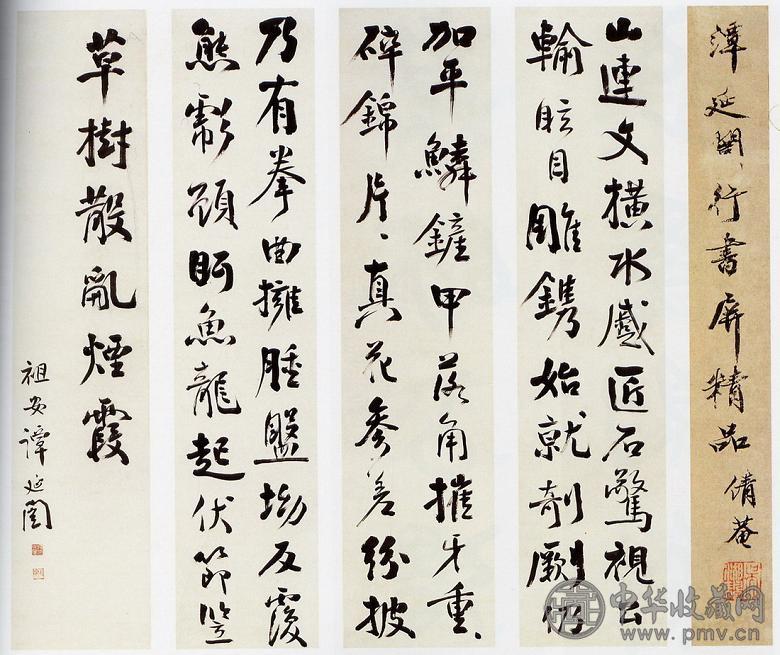 潭延闓行書屏精品 倩菴
山連文横水蹙匠石驚視公
輸眩目雕鐫始就剞劂仍
加平鱗鏟甲落角摧牙重重
碎錦片片真花參差紛披
乃有拳曲擁腫盤坳反覆
熊彪顧盻魚龍起伏節豎
草樹散亂煙霞
祖安譚延闓
中华收藏网
www.pmv.cn